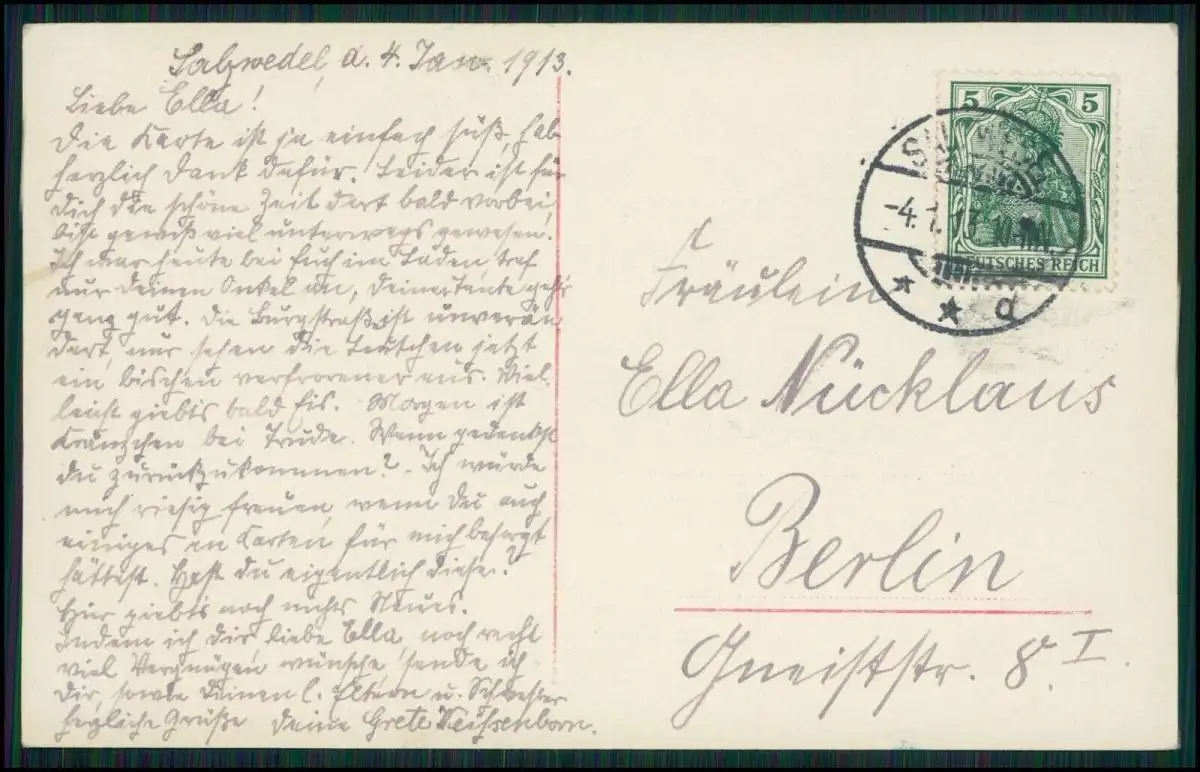 Salzwedel, d. 4. Jan. 1913.
Liebe Ella!
Die Karte ist ja einfach süß, hab
herzlich Dank dafür. Leider ist für
Dich die schöne Zeit dort bald vorbei,
bist gewiß viel unterwegs gewesen.
Ich war heute bei Euch im Laden, traf
nur Deinen Onkel an, Deiner Tante geht's
ganz gut. Die Burgstraße ist unverän
dert, nur sehen die Leutchen jetzt
ein bischen verfrorener aus. Viel
leicht giebts bald Eis. Morgen ist
Kränzchen bei Trude. Wann gedenkst
du zurückzukommen? Ich würde
mich riesig freuen, wenn Du auch
einiges an Karten für mich besorgt
hättest. Hast du eigentlich diese?
Hier giebts noch nichts Neues.
Indem ich Dir, liebe Ella, noch recht
viel Vergnügen wünsche, sende ich
Dir, sowie Deinen l. Eltern u. Schwester
herzliche Grüße Deine Grete Weissenborn.
5 5
DEUTSCHES REICH
-4.1.13. 10-11N.
* * d
Fräulein
Ella Nücklaus
Berlin
Gneiststr. 8 I.